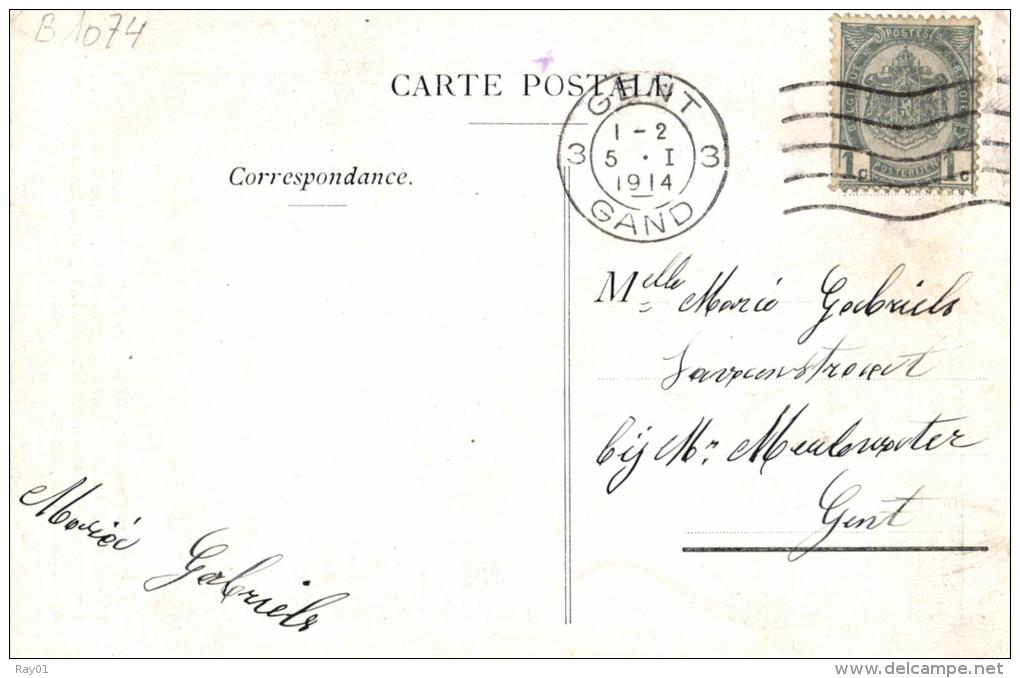 B1074
CARTE POSTALE
Correspondance.
GENT
1-2
3 5 · I 3
1914
GAND
POSTES
BELGIQUE BELGIË
1c POSTERIJEN 1c
Melle Marie Gabriels
bij Mr. Meulewater
Gent
Marie Gabriels
Ray01
www.delcampe.net